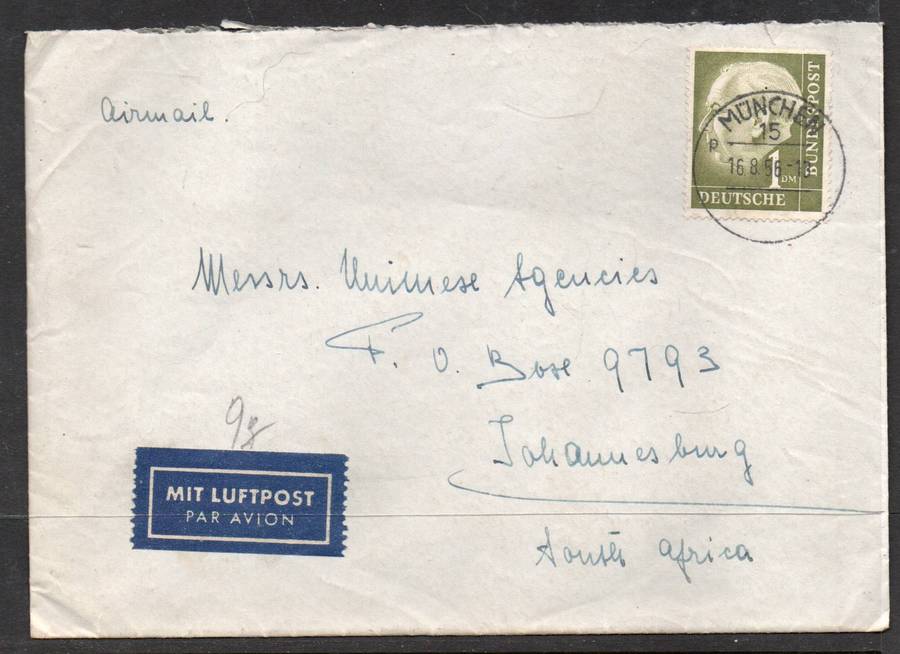 Airmail.
DEUTSCHE
BUNDESPOST
1 DM
MÜNCHEN
15
P
16.8.56-1
Messrs. Unimese Agencies
P. O. Boxe 9793
Johannesburg
South Africa
9g
MIT LUFTPOST
PAR AVION